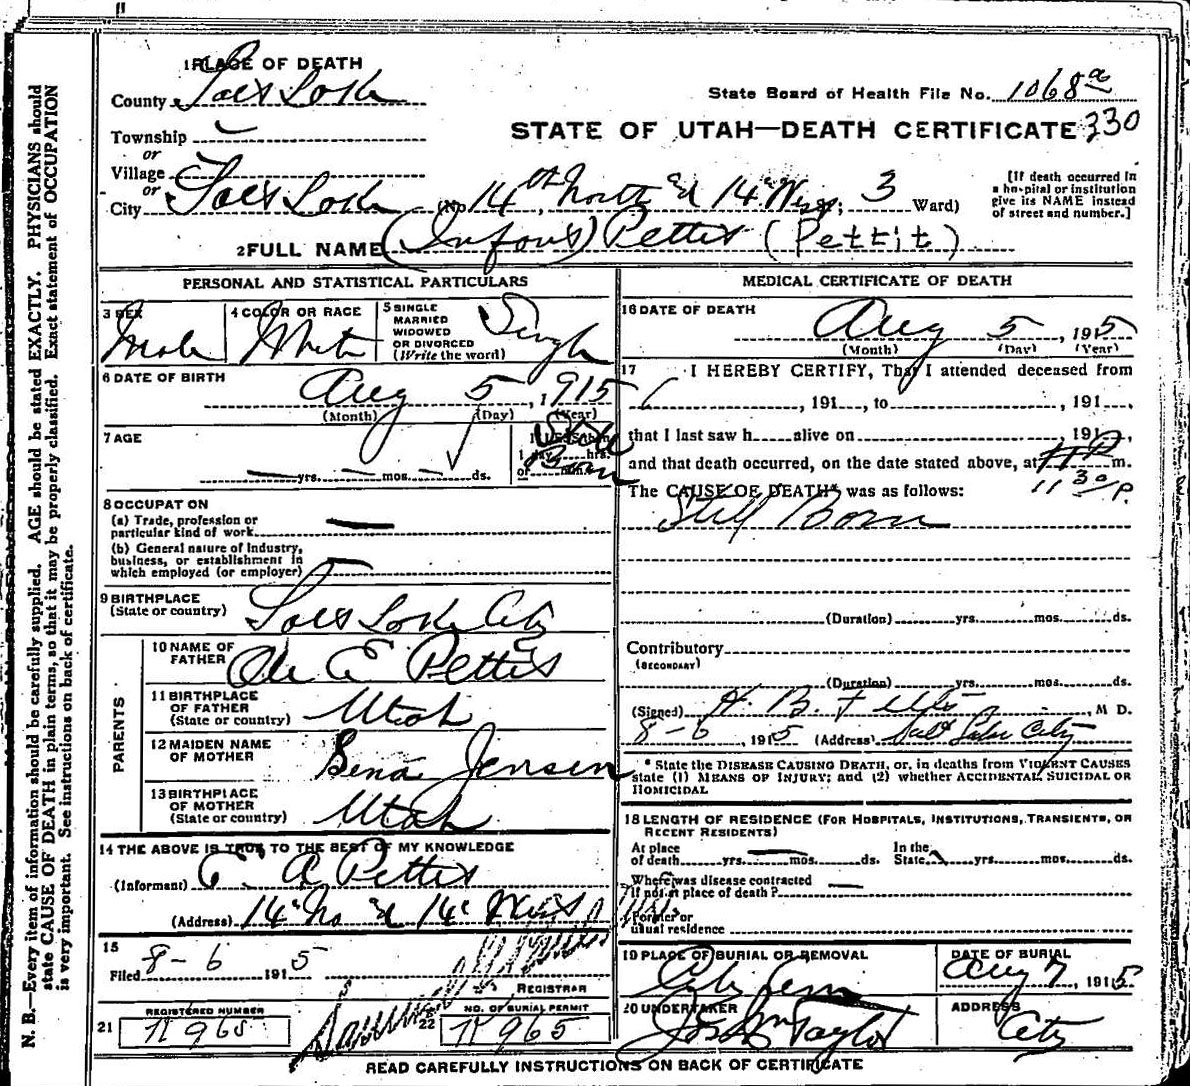 1 PLACE OF DEATH
County Salt Lake
State Board of Health File No. 1068 a
Township
STATE OF UTAH—DEATH CERTIFICATE 330
or
Village
or
City Salt Lake (No 14th North & 14" West; 3 Ward)
[If death occurred in
a hospital or institution
give its NAME instead
of street and number.]
2 FULL NAME (Infant) Pettit (Pettit)
PERSONAL AND STATISTICAL PARTICULARS
3 SEX
Male
4 COLOR OR RACE
White
5 SINGLE
MARRIED
WIDOWED
OR DIVORCED
(Write the word)
Single
6 DATE OF BIRTH
Aug 5, 1915
(Month) (Day) (Year)
7 AGE
yrs. mos. ds.
If LESS than
1 day hrs.
or min.
Still
Born
8 OCCUPATION
(a) Trade, profession or
particular kind of work
(b) General nature of Industry,
business, or establishment in
which employed (or employer)
9 BIRTHPLACE
(State or country)
Salt Lake City
PARENTS
10 NAME OF
FATHER
E Pettit
11 BIRTHPLACE
OF FATHER
(State or country)
Utah
12 MAIDEN NAME
OF MOTHER
Bena Jensen
13 BIRTHPLACE
OF MOTHER
(State or country)
Utah
14 THE ABOVE IS TRUE TO THE BEST OF MY KNOWLEDGE
(Informant) E. A Pettit
(Address) 14" No & 14" West
15
Filed 8-6 1915
REGISTRAR
21
REGISTERED NUMBER
H 965
22
NO. OF BURIAL PERMIT
H 965
MEDICAL CERTIFICATE OF DEATH
16 DATE OF DEATH
Aug 5, 1915
(Month) (Day) (Year)
17 I HEREBY CERTIFY, That I attended deceased from
, 191 , to , 191 ,
that I last saw h alive on 191 ,
and that death occurred, on the date stated above, at 11 P m.
11 30/P.
The CAUSE OF DEATH* was as follows:
Still Born
(Duration) yrs. mos. ds.
Contributory
(SECONDARY)
(Duration) yrs. mos. ds.
(Signed) H. B. , M D.
8-6, 1915 (Address) Salt Lake City
* State the DISEASE CAUSING DEATH, or, in deaths from VIOLENT CAUSES
state (1) MEANS OF INJURY; and (2) whether ACCIDENTAL, SUICIDAL OR
HOMICIDAL
18 LENGTH OF RESIDENCE (FOR HOSPITALS, INSTITUTIONS, TRANSIENTS, OR
RECENT RESIDENTS)
At place
of death yrs. mos. ds.
In the
State yrs. mos. ds.
Where was disease contracted
If not at place of death?
Former or
usual residence
19 PLACE OF BURIAL OR REMOVAL
City Cem
DATE OF BURIAL
Aug 7, 1915
20 UNDERTAKER
Jos Wm Taylor
ADDRESS
City
READ CAREFULLY INSTRUCTIONS ON BACK OF CERTIFICATE
N. B.—Every item of information should be carefully supplied. AGE should be stated EXACTLY. PHYSICIANS should
state CAUSE OF DEATH in plain terms, so that it may be properly classified. Exact statement of OCCUPATION
is very important. See instructions on back of certificate.